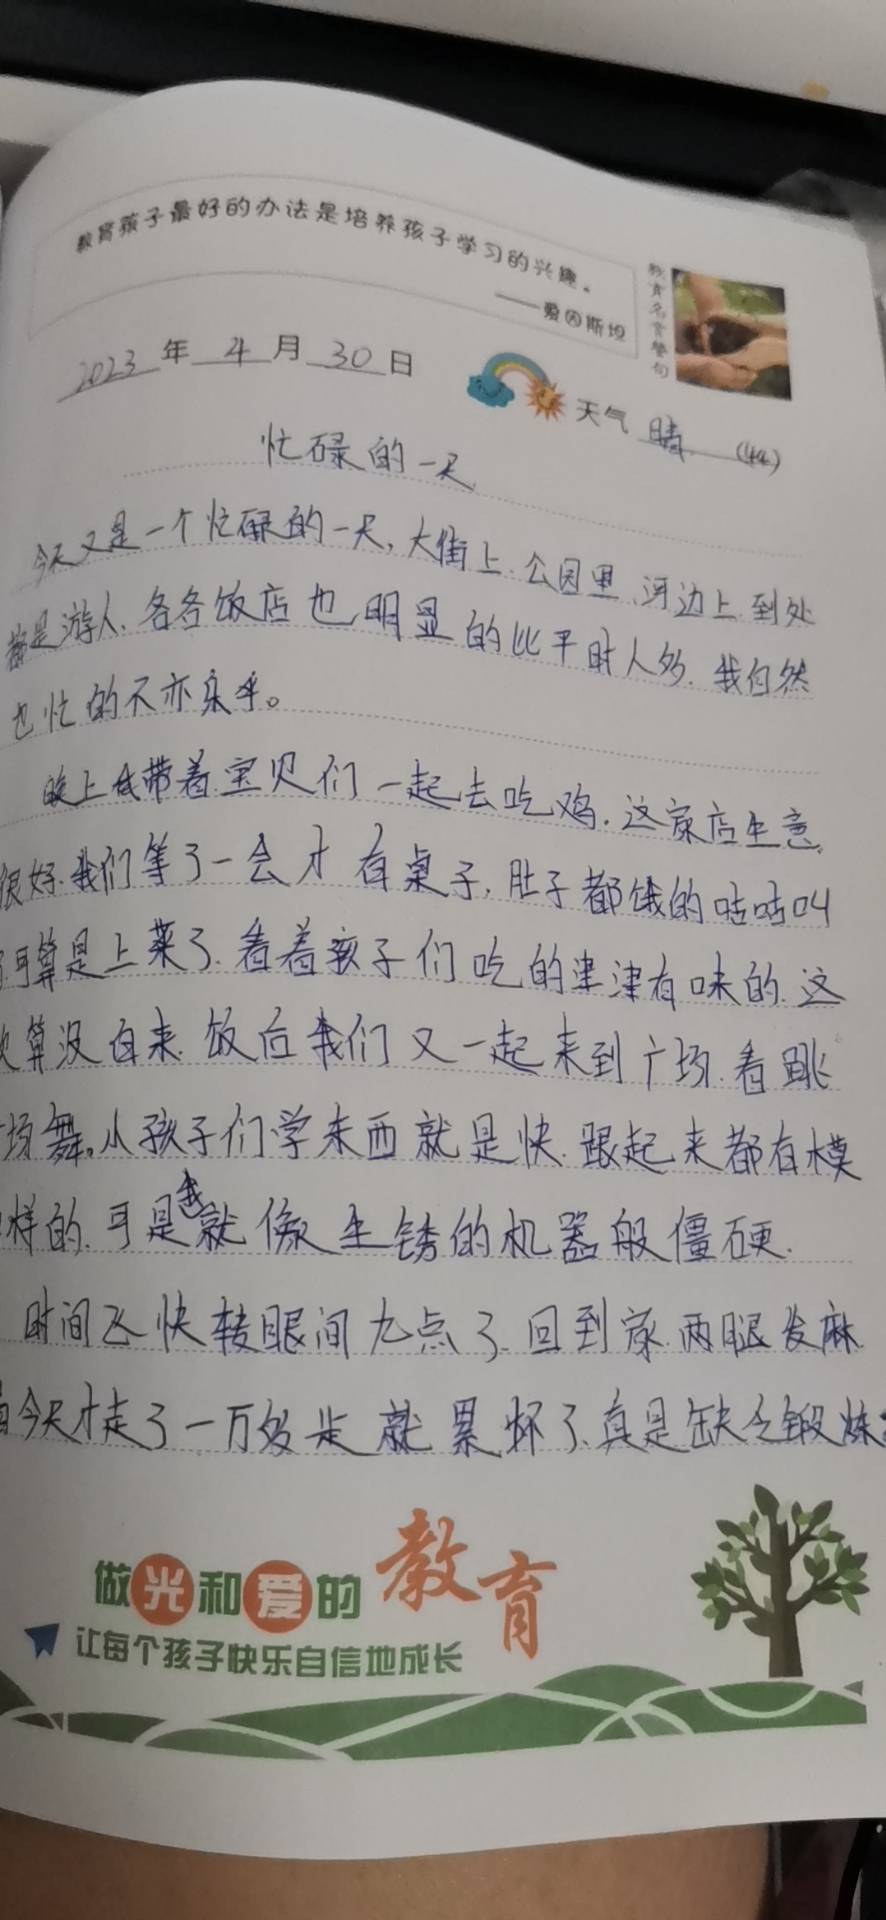 教育孩子最好的办法是培养孩子学习的兴趣。
——爱因斯坦
教育名言警句
2023年4月30日
天气 晴 (44)
忙碌的一天
今天又是一个忙碌的一天,大街上.公园里.河边上到处
都是游人.各各饭店也明显的比平时人多.我自然
也忙的不亦乐乎。
晚上我带着宝贝们一起去吃鸡.这家店生意
很好.我们等了一会才有桌子,肚子都饿的咕咕叫
可算是上菜了.看着孩子们吃的津津有味的.这
次算没白来.饭后我们又一起来到广场.看跳
场舞。小孩子们学东西就是快.跟起来都有模
样的.可是我就像生锈的机器般僵硬.
时间飞快转眼间九点了.回到家两腿发麻
今天才走了一万多步就累坏了.真是缺乏锻炼
做光和爱的教育
让每个孩子快乐自信地成长